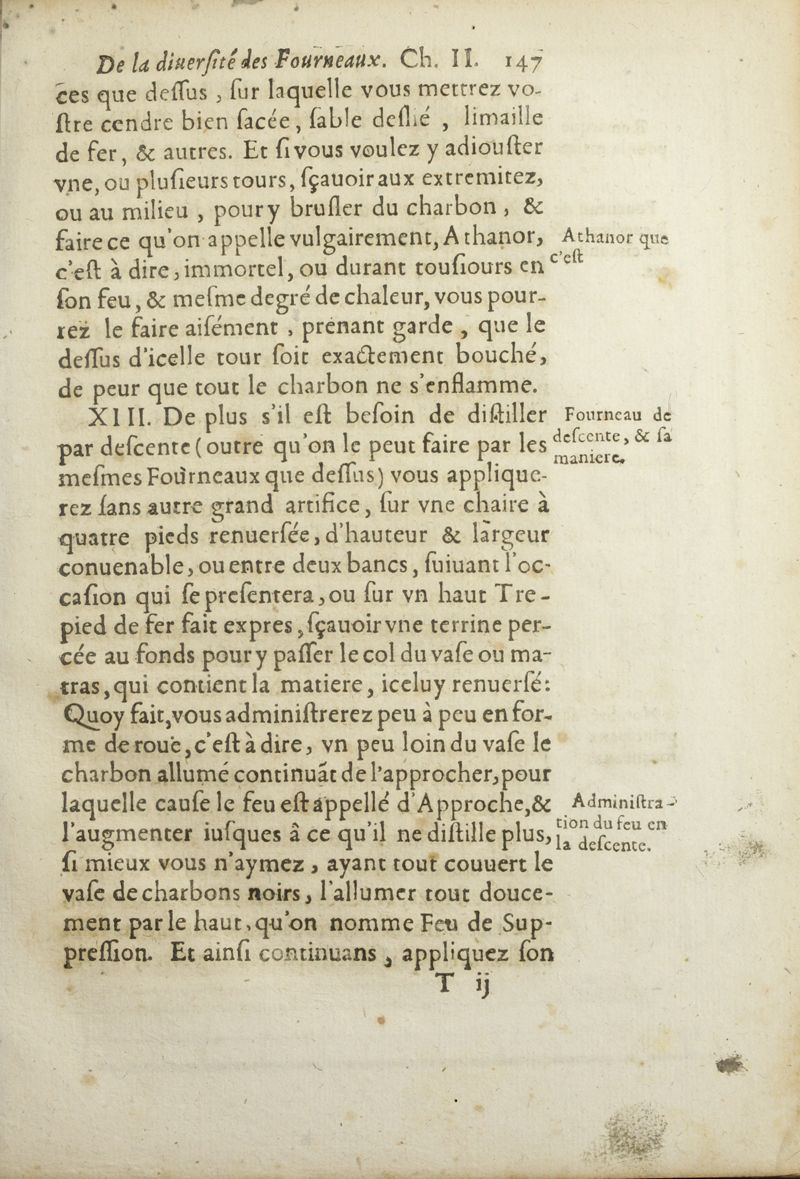 De la diuerſité des Fourneaux. Ch. II. 147
ces que deſſus , ſur laquelle vous mettrez vo-
ſtre cendre bien ſacée, ſable deſlié , limaille
de fer, & autres. Et ſi vous voulez y adiouſter
vne, ou pluſieurs tours, ſçauoir aux extremitez,
ou au milieu , pour y bruſler du charbon , &
faire ce qu'on appelle vulgairement, Athanor,
Athanor que
c'eſt
c'eſt à dire, immortel, ou durant touſiours en
ſon feu, & meſme degré de chaleur, vous pour-
rez le faire aiſément , prenant garde , que le
deſſus d'icelle tour ſoit exactement bouché,
de peur que tout le charbon ne s'enflamme.
XIII. De plus s'il eſt beſoin de diſtiller
Fourneau de
deſcente, & ſa
maniere.
par deſcente (outre qu'on le peut faire par les
meſmes Fourneaux que deſſus) vous applique-
rez ſans autre grand artifice, ſur vne chaire à
quatre pieds renuerſée, d'hauteur & largeur
conuenable, ou entre deux bancs, ſuiuant l'oc-
caſion qui ſe preſentera, ou ſur vn haut Tre-
pied de fer fait expres, ſçauoir vne terrine per-
cée au fonds pour y paſſer le col du vaſe ou ma-
tras, qui contient la matiere, iceluy renuerſé:
Quoy fait, vous adminiſtrerez peu à peu en for-
me de rouë, c'eſt à dire, vn peu loin du vaſe le
charbon allumé continuãt de l'approcher, pour
laquelle cauſe le feu eſt appellé d'Approche, &
Adminiſtra-
tion du feu en
la deſcente.
l'augmenter iuſques à ce qu'il ne diſtille plus,
ſi mieux vous n'aymez , ayant tout couuert le
vaſe de charbons noirs, l'allumer tout douce-
ment par le haut, qu'on nomme Feu de Sup-
preſſion. Et ainſi continuans , appliquez ſon
T ij